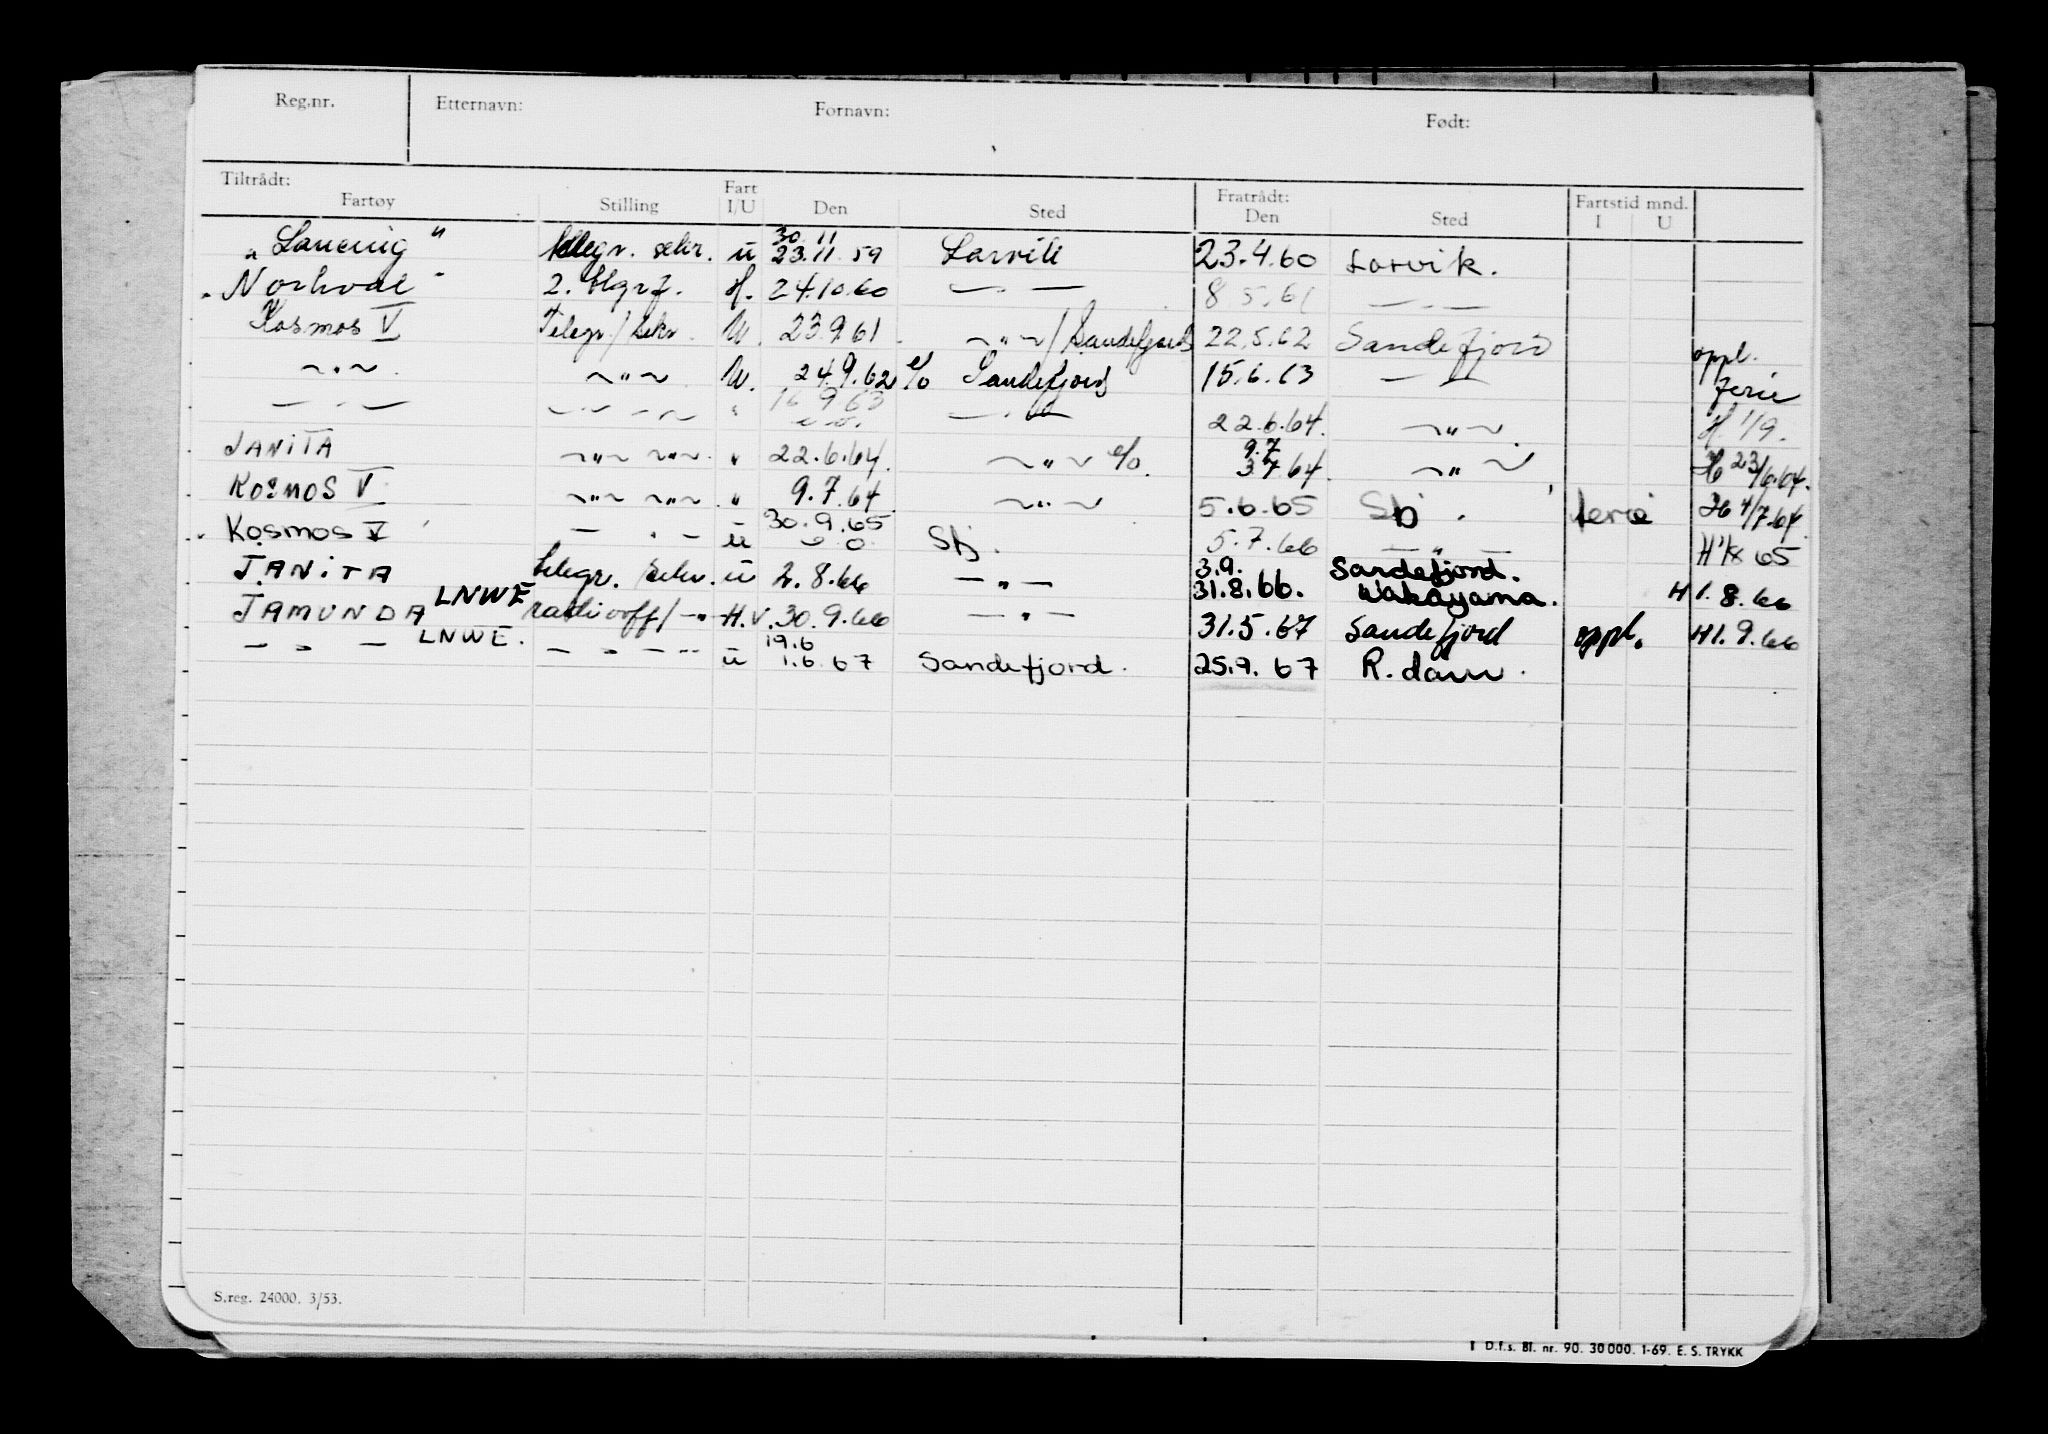 Reg.nr. Etternavn: Fornavn: Født:
Tiltrådt: Fartøy Stilling Fart I/U Den Sted Fratrådt: Den Sted Fartstid mnd. I U
30.11
„Lancing" telegr. sekr. u 23.11.59 Larvik 23.4.60 Larvik.
„Norhval" 2. tlgrf. H. 24.10.60 — — 8 5.61 — —
Kosmos V Telegr./sekr. U. 23.9.61 ~ " ~ / Sandefjord 22.5.62 Sandefjord oppl.
~ " ~ ~ " ~ U. 24.9.62 e/o Sandefjord 15.6.63 — — ferie
— " — — " — " 16 9 63 — " — 22.6.64. ~ " ~ H. 1/9.
9.7
JANITA ~ " ~ ~ " ~ " 22.6.64. ~ " ~ e/o. 3.7.64. ~ " ~ 23/6.64.
KOSMOS V ~ " ~ ~ " ~ " 9.7.64 ~ " ~ 5.6.65 Sbj. ferie 4/7.64
30.9.65
Kosmos V — " — u e o. Sbj. 5.7.66 — " — 65
3.9. Sandefjord.
JANITA telegr. sekr. u 2.8.66 — " — 31.8.66. Wakayama. H 1.8.66
LNWE
JAMUNDA radiooff/ — " — H.V. 30.9.66 — " — 31.5.67 Sandefjord oppl. H 1.9.66
LNWE. 19.6
— " — — " — " u 1.6.67 Sandefjord. 25.9.67 R.dam.
S.reg. 24000. 3/53.
D.f.s. Bl. nr. 90. 30 000. 1-69. E. S. TRYKK